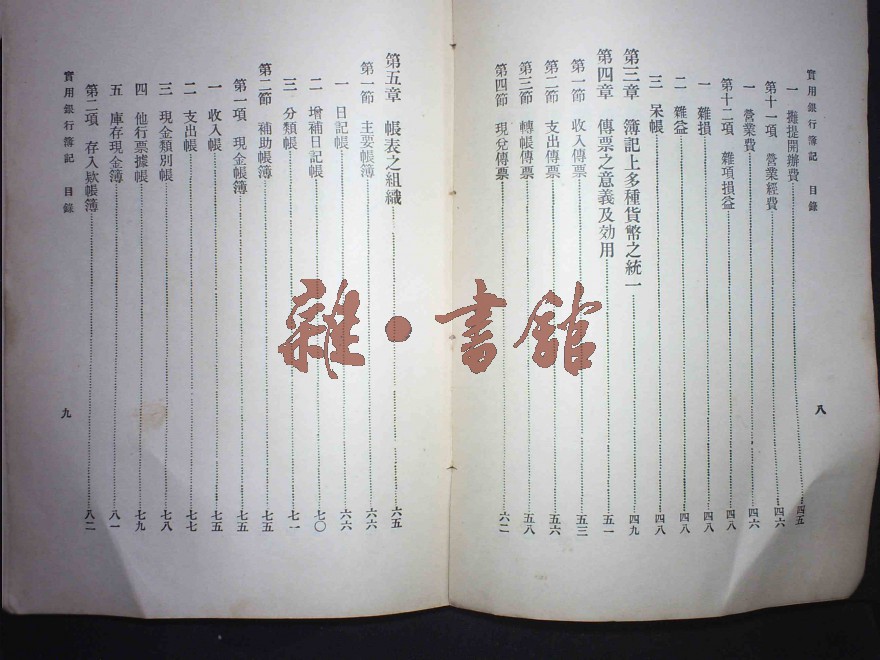 實用銀行簿記 目錄
八
一 攤提開辦費 四五
第十一項 營業經費 四六
一 營業費 四六
第十二項 雜項損益 四八
一 雜損 四八
二 雜益 四八
三 呆帳 四八
第三章 簿記上多種貨幣之統一 四九
第四章 傳票之意義及効用 五一
第一節 收入傳票 五三
第二節 支出傳票 五六
第三節 轉帳傳票 五八
第四節 現兌傳票 六二
第五章 帳表之組織 六五
第一節 主要帳簿 六六
一 日記帳 六六
二 增補日記帳 七〇
三 分類帳 七一
第二節 補助帳簿 七五
第一項 現金帳簿 七五
一 收入帳 七五
二 支出帳 七七
三 現金類別帳 七八
四 他行票據帳 七九
五 庫存現金簿 八一
第二項 存入欵帳簿 八二
實用銀行簿記 目錄
九
雜·書館